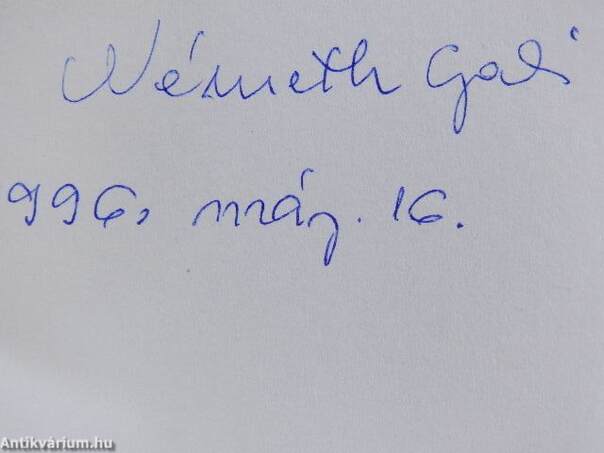 Németh Gabi
996. máj. 16.
Antikvárium.hu